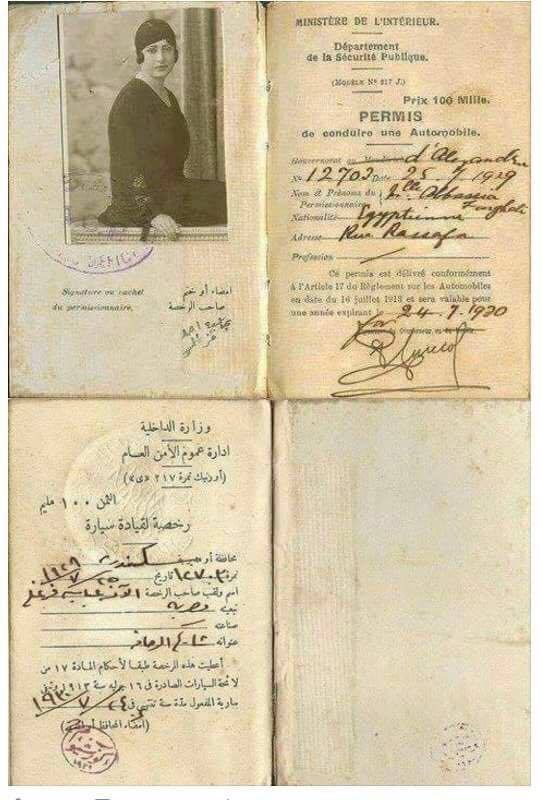 MINISTÈRE DE L'INTÉRIEUR.
Département
de la Sécurité Publique.
(MODÈLE Nº 217 J.)
Prix 100 Mills.
PERMIS
de conduire une Automobile.
Gouvernorat ou d'Alexandrie
Nº 12703 Date 25. 7. 1929
Nom et Prénoms du Mlle Abbassia
Permissionnaire Farghali
Nationalité Egyptienne
Adresse Rue Rassafa
Profession
Ce permis est délivré conformément
à l'Article 17 du Règlement sur les Automobiles
en date du 16 juillet 1913 et sera valable pour
une année expirant le 24. 7. 1930
Signature ou cachet
du permissionnaire.
امضاء أو ختم
صاحب الرخصة
وزارة الداخلية
ادارة عموم الأمن العام
(أورنيك نمرة ٢١٧ «ى»)
الثمن ١٠٠ مليم
رخصة لقيادة سيارة
محافظة أو سكندرية
نمرة ١٢٧٠٣ تاريخ ٢٥/٧/١٩٢٩
اسم ولقب صاحب الرخصة الآنسة عباسية فرغلي
تبعيته مصرية
صناعته
عنوانه شارع الرصافة
أعطيت هذه الرخصة طبقا لأحكام المادة ١٧ من
لائحة السيارات الصادرة فى ١٦ يوليه سنة ١٩١٣ وتبقى
سارية المفعول مدة سنة تنتهى فى ٢٤/٧/١٩٣٠
(امضاء المحافظ أو المدير)